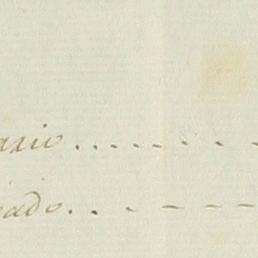 axio . . . . . . . .
ado . . . - - -